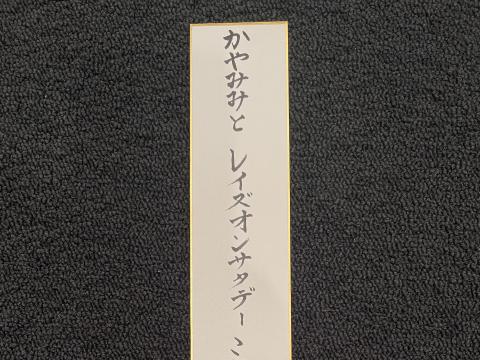 かやみみと レイズオンサタデー